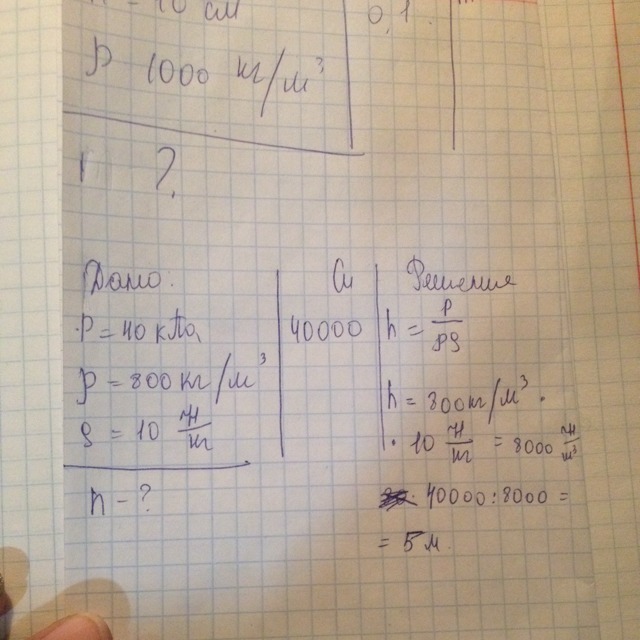 = 10 см
0,1
ρ 1000 кг/м³
?
Дано:
P = 40 кПа
ρ = 800 кг/м³
g = 10 Н/кг
h - ?
Си
40000
Решения
h = P/ρg
h = 800 кг/м³ ·
· 10 Н/кг = 8000 Н/м³
40000 : 8000 =
= 5 м.